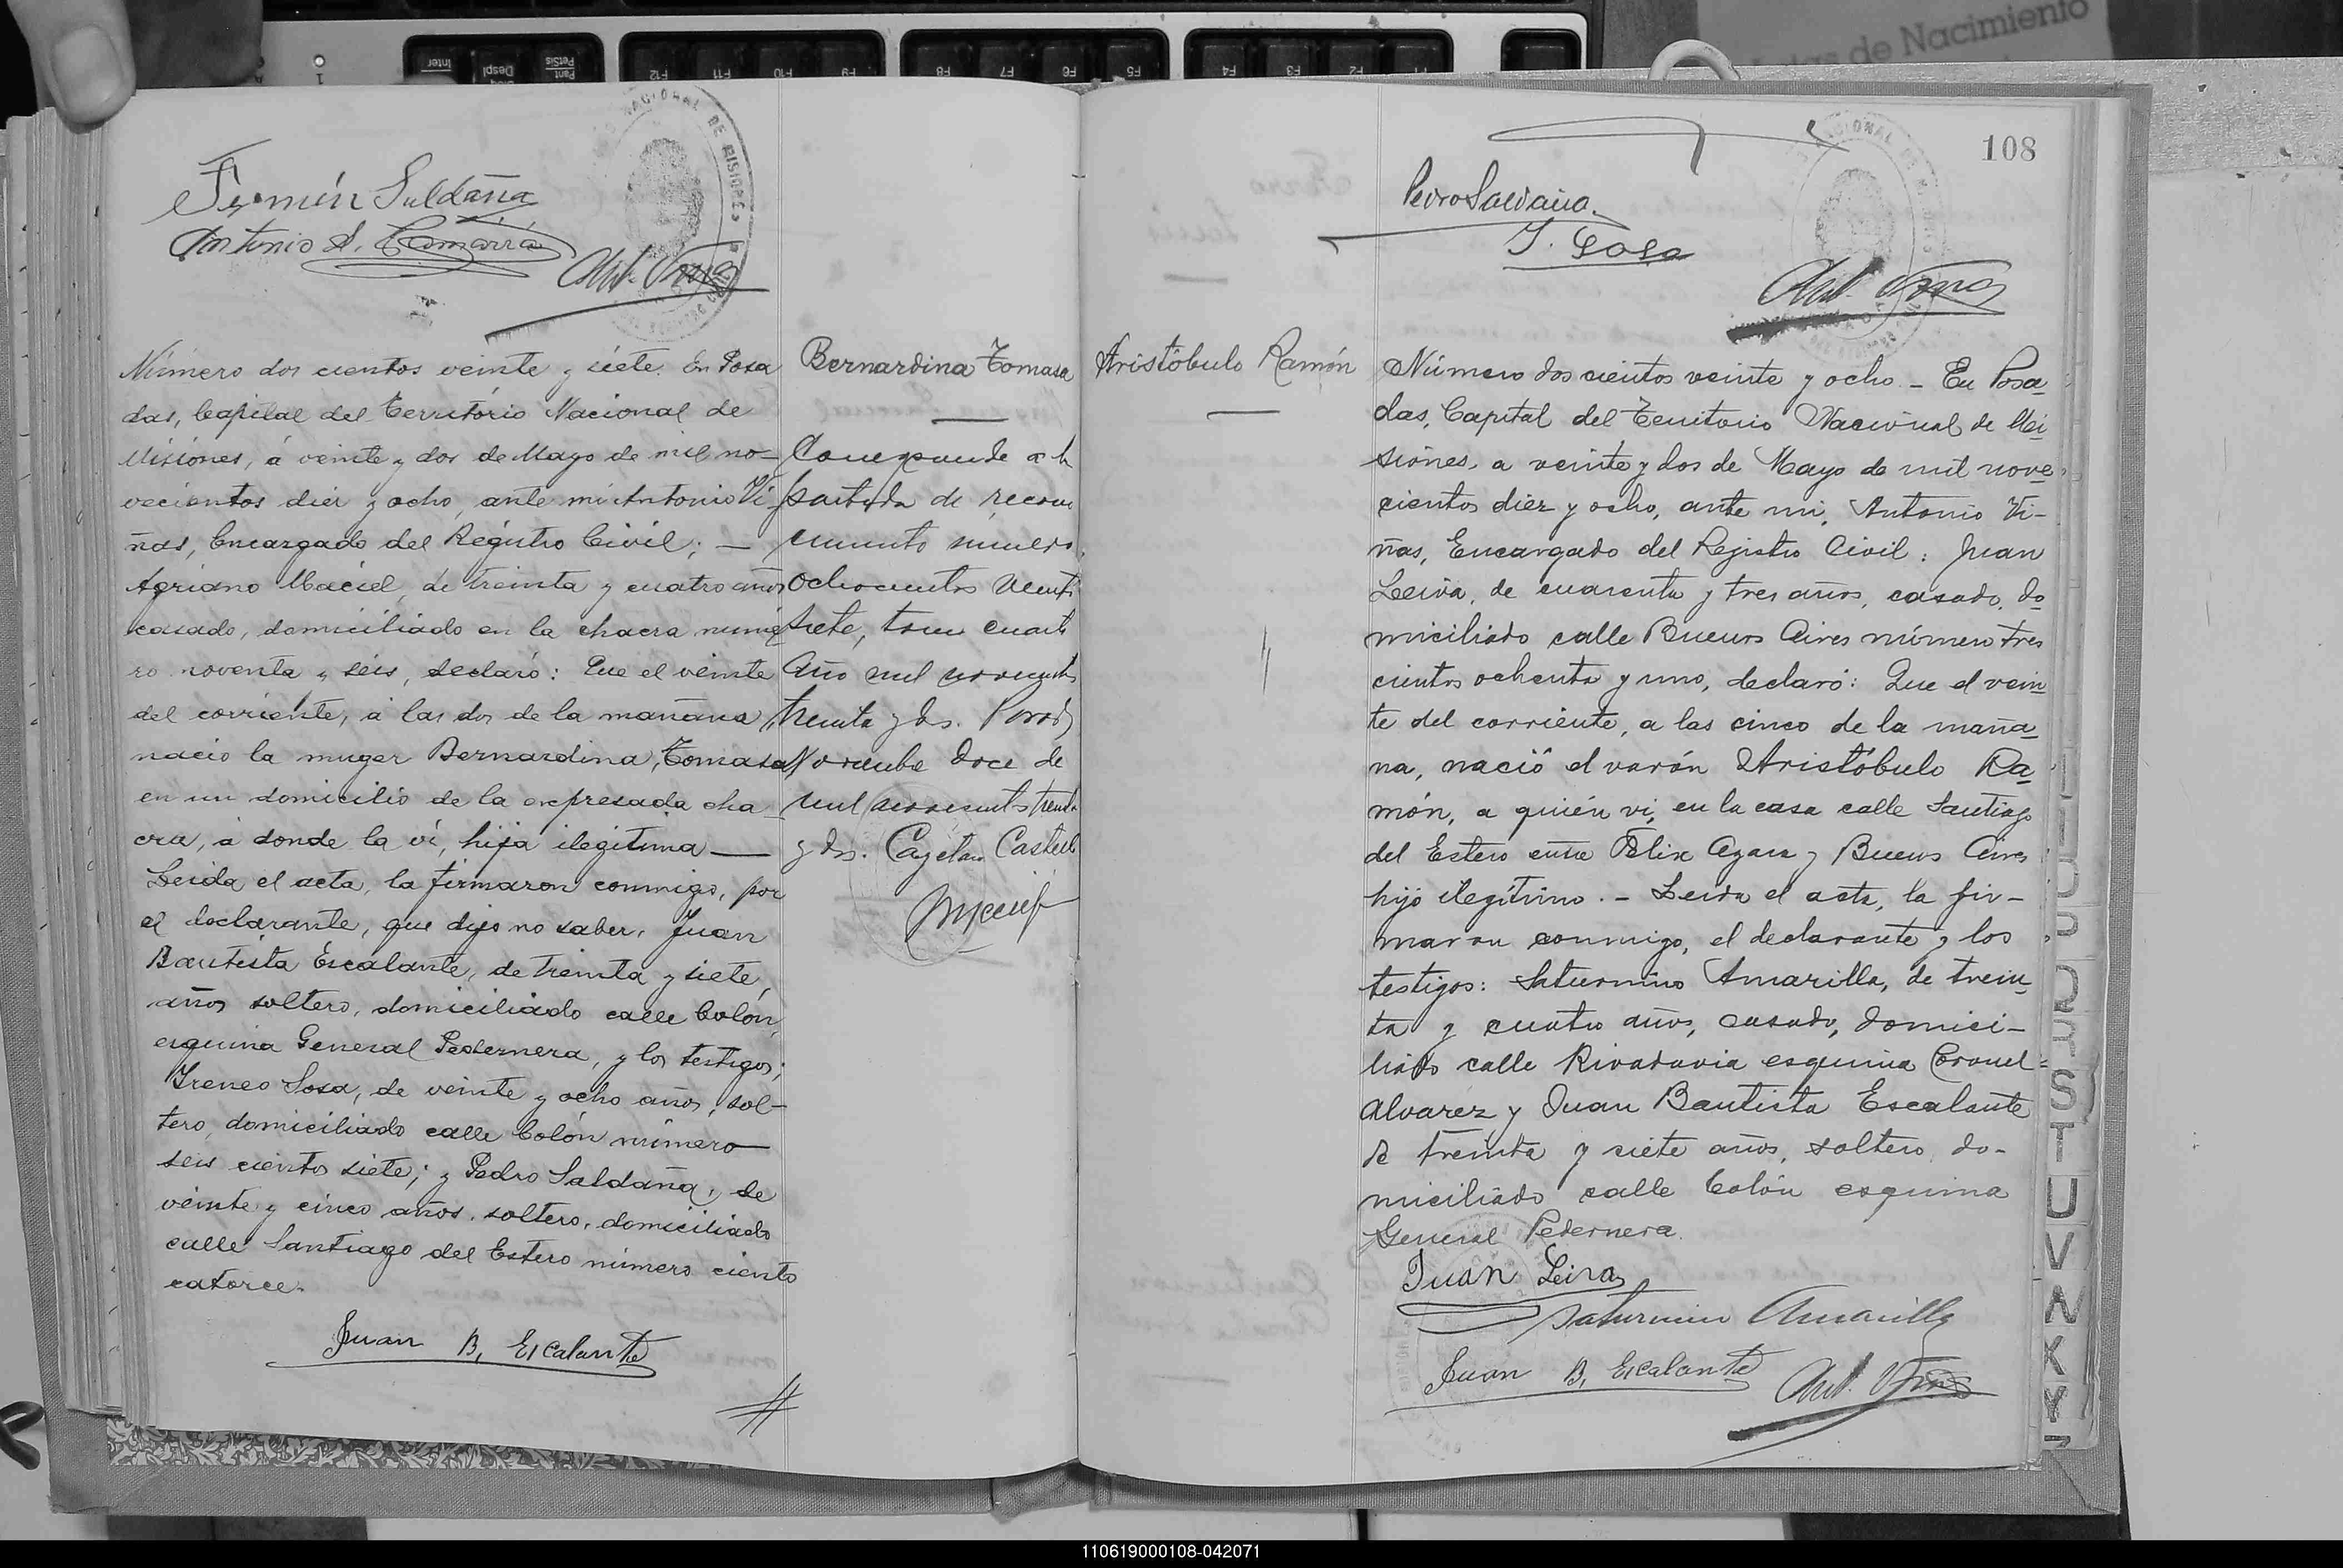 Inter
Despl
Pant
PetSis
F12
F11
F10
F9
F8
F7
F6
F5
F4
F3
F2
F1
de Nacimiento
Fermín Saldaña
Antonio A. Gamarra
Ant. Viñas
Número dos cientos veinte y siete. En Posa
das, Capital del Território Nacional de
Misiones, á veinte y dos de Mayo de mil no-
vecientos diez y ocho, ante mi Antonio Vi-
ñas, Encargado del Registro Civil; —
Agriano Maciel, de treinta y cuatro años
casado, domiciliado en la chacra núme
ro noventa y seis, declaró: Que el veinte
del corriente, á las dos de la mañana,
nació la muger Bernardina, Tomasa
en un domicilio de la expresada cha
cra, á donde la ví, hija ilegitima —
Leida el acta, la firmaron conmigo, por
el declarante, que dijo no saber, Juan
Bautista Escalante, de treinta y siete,
años soltero, domiciliado calle Colón,
esquina General Pedernera, y los testigos;
Ireneo Sosa, de veinte y ocho años, sol-
tero, domiciliado calle Colón número
seis cientos siete; y Pedro Saldaña, de
veinte y cinco años, soltero, domiciliado
calle Santiago del Estero número ciento
catorce.
Juan B. Escalante
Bernardina Tomasa
Corresponde a la
partida de recono
cimiento número
ochocientos veinti
siete, tomo cuarto
año mil novecientos
treinta y dos. Posadas
Noviembre doce de
mil novecientos treinta
y dos. Cayetano
108
Pedro Saldaña.
I. Sosa
Ant. Viñas
Aristóbulo Ramón
Número dos cientos veinte y ocho. - En Posa
das, Capital del Territorio Nacional de Mi
siones, a veinte y dos de Mayo de mil nove
cientos diez y ocho, ante mi, Antonio Vi-
ñas, Encargado del Registro Civil: Juan
Leiva, de cuarenta y tres años, casado, do
miciliado calle Buenos Aires número tres
cientos ochenta y uno, declaró: Que el vein
te del corriente, a las cinco de la maña
na, nació el varón Aristóbulo Ra
món, a quién vi, en la casa calle Santiago
del Estero entre Félix Azara y Buenos Aires
hijo ilegítimo. - Leida el acta, la fir-
maron conmigo, el declarante y los
testigos: Saturnino Amarilla, de trein
ta y cuatro años, casado, domici-
liado calle Rivadavia esquina Coronel
Alvarez y Juan Bautista Escalante
de treinta y siete años, soltero, do-
miciliado calle Colón esquina
General Pedernera.
Juan Leiva
Saturnino Amarilla
Juan B. Escalante
Ant. Viñas
Q
R
S
T
U
V
W
X
Y
Z
110619000108-042071